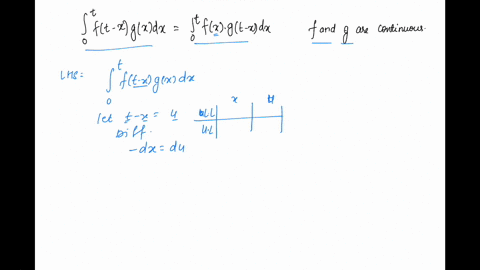 ∫₀ᵗ f(t-x)g(x)dx = ∫₀ᵗ f(x)·g(t-x)dx f and g are continuous.
LHS: ∫₀ᵗ f(t-x)g(x)dx
x u
let t-x = u LL
Diff. UL
-dx = du